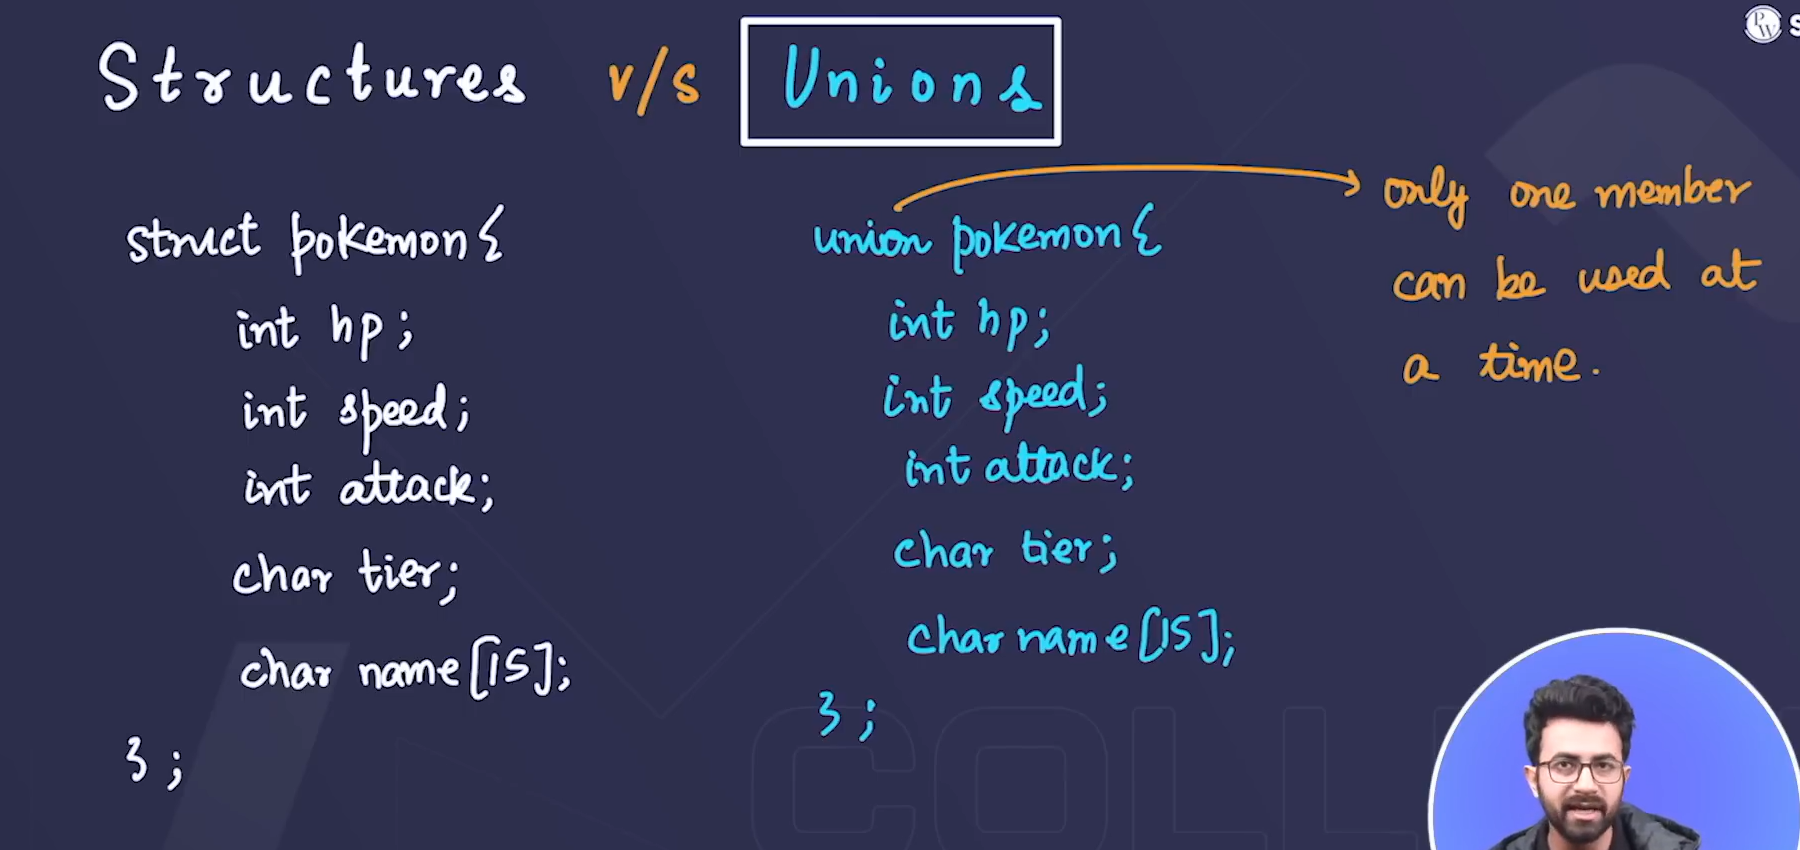 Structures v/s Unions
PW S
struct pokemon{
int hp;
int speed;
int attack;
char tier;
char name[15];
};
union pokemon{
int hp;
int speed;
int attack;
char tier;
char name[15];
};
only one member
can be used at
a time.
COLL